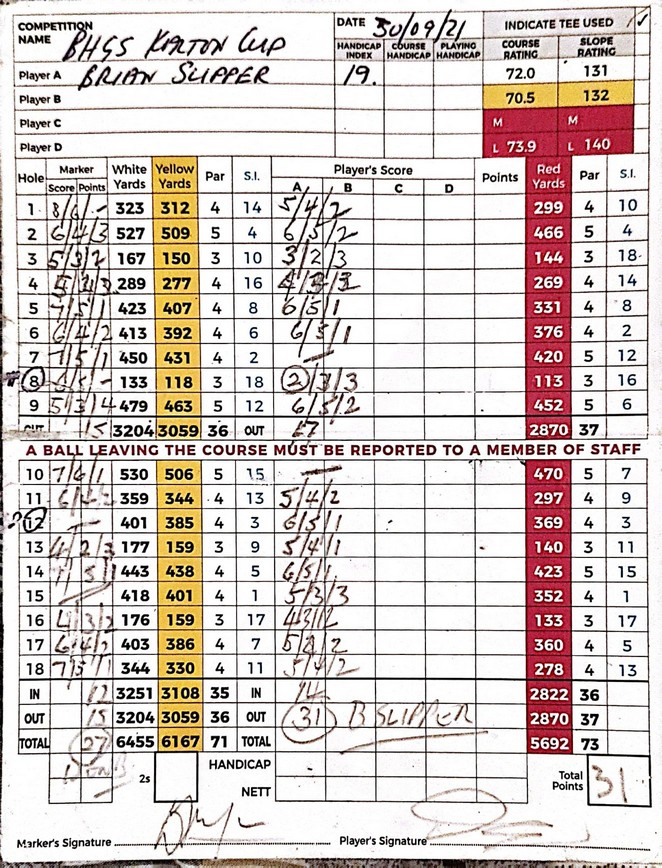 COMPETITION NAME BHGS KARTON CUP DATE 30/09/21 INDICATE TEE USED ✓
HANDICAP INDEX COURSE HANDICAP PLAYING HANDICAP COURSE RATING SLOPE RATING
Player A BRIAN SLIPPER 19. 72.0 131
Player B 70.5 132
Player C M M
Player D L 73.9 L 140
Hole Marker White Yards Yellow Yards Par S.I. Player's Score Points Red Yards Par S.I.
Score Points A B C D
1 8/6/- 323 312 4 14 5/4/2 299 4 10
2 6/4/3 527 509 5 4 6/5/2 466 5 4
3 5/3/2 167 150 3 10 3/2/3 144 3 18
4 289 277 4 16 269 4 14
5 7/5/1 423 407 4 8 6/5/1 331 4 8
6 6/4/2 413 392 4 6 6/5/1 376 4 2
7 7/5/1 450 431 4 2 — 420 5 12
8 133 118 3 18 2/3/3 113 3 16
9 5/3/4 479 463 5 12 6/5/2 452 5 6
OUT 15 3204 3059 36 OUT 17 2870 37
A BALL LEAVING THE COURSE MUST BE REPORTED TO A MEMBER OF STAFF
10 7/6/1 530 506 5 15 — 470 5 7
11 359 344 4 13 5/4/2 297 4 9
?12 — 401 385 4 3 6/5/1 369 4 3
13 4/2/3 177 159 3 9 5/4/1 140 3 11
14 7/5/1 443 438 4 5 6/5/1 423 5 15
15 — 418 401 4 1 5/3/3 352 4 1
16 4/3/2 176 159 3 17 4/3/2 133 3 17
17 6/4/2 403 386 4 7 5/4/2 360 4 5
18 7/5/1 344 330 4 11 5/4/2 278 4 13
IN 12 3251 3108 35 IN 14 2822 36
OUT 15 3204 3059 36 OUT 31 B SLIPPER 2870 37
TOTAL 27 6455 6167 71 TOTAL 5692 73
2s HANDICAP Total Points 31
NETT
Marker's Signature Player's Signature